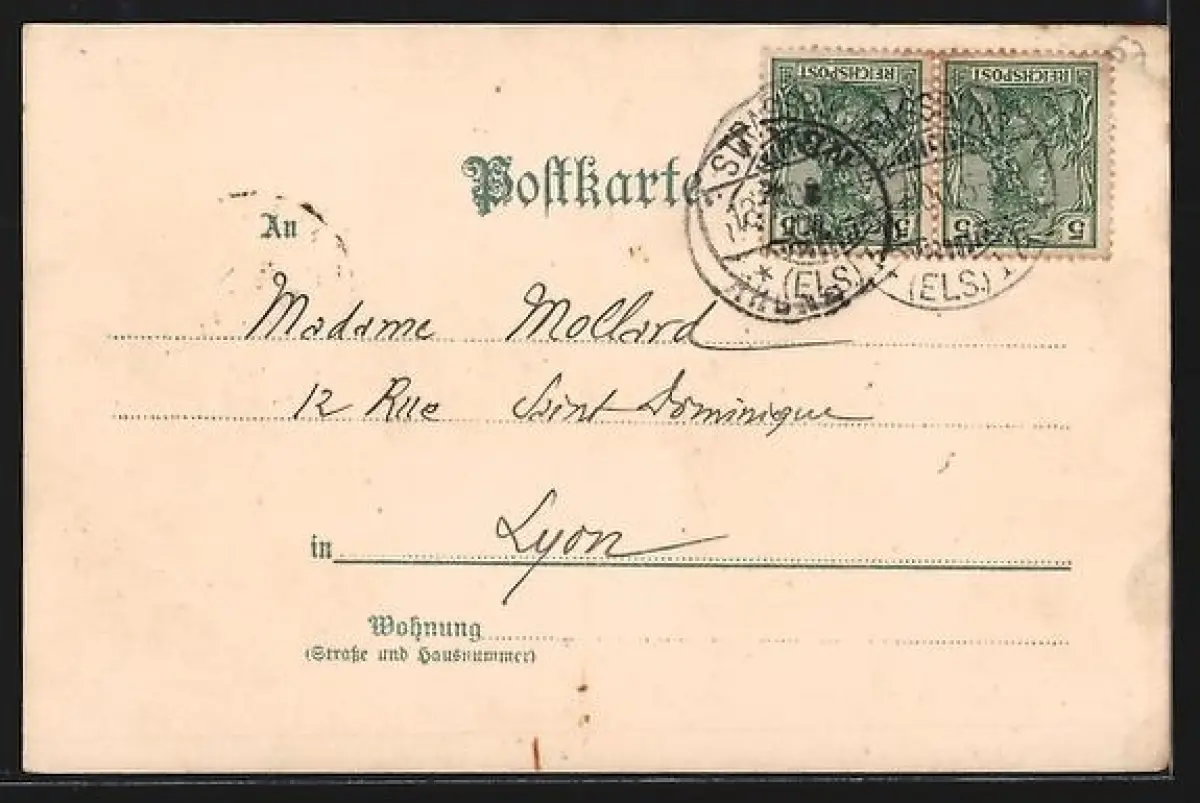 REICHSPOST REICHSPOST
5 5 5 5
(ELS) (ELS.)
Postkarte.
An
Madame Mollard
12 Rue Saint Dominique
in Lyon
Wohnung
(Straße und Hausnummer)